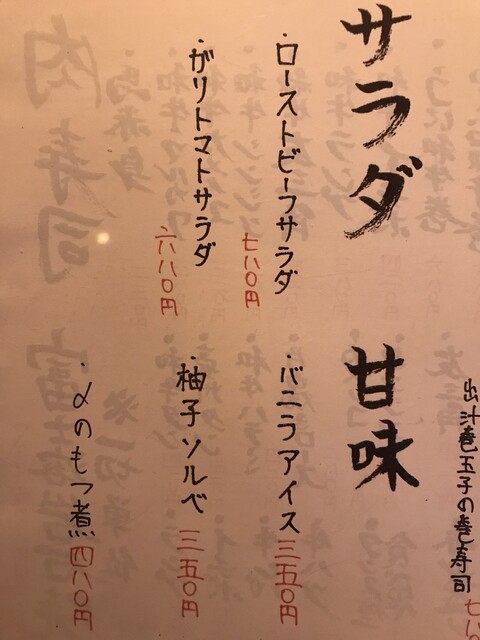 出汁巻玉子の巻寿司 七八
サラダ
・ローストビーフサラダ 七八〇円
・ガリトマトサラダ 六八〇円
甘味
・バニラアイス 三五〇円
・柚子ソルベ 三五〇円
・〆のもつ煮 四八〇円